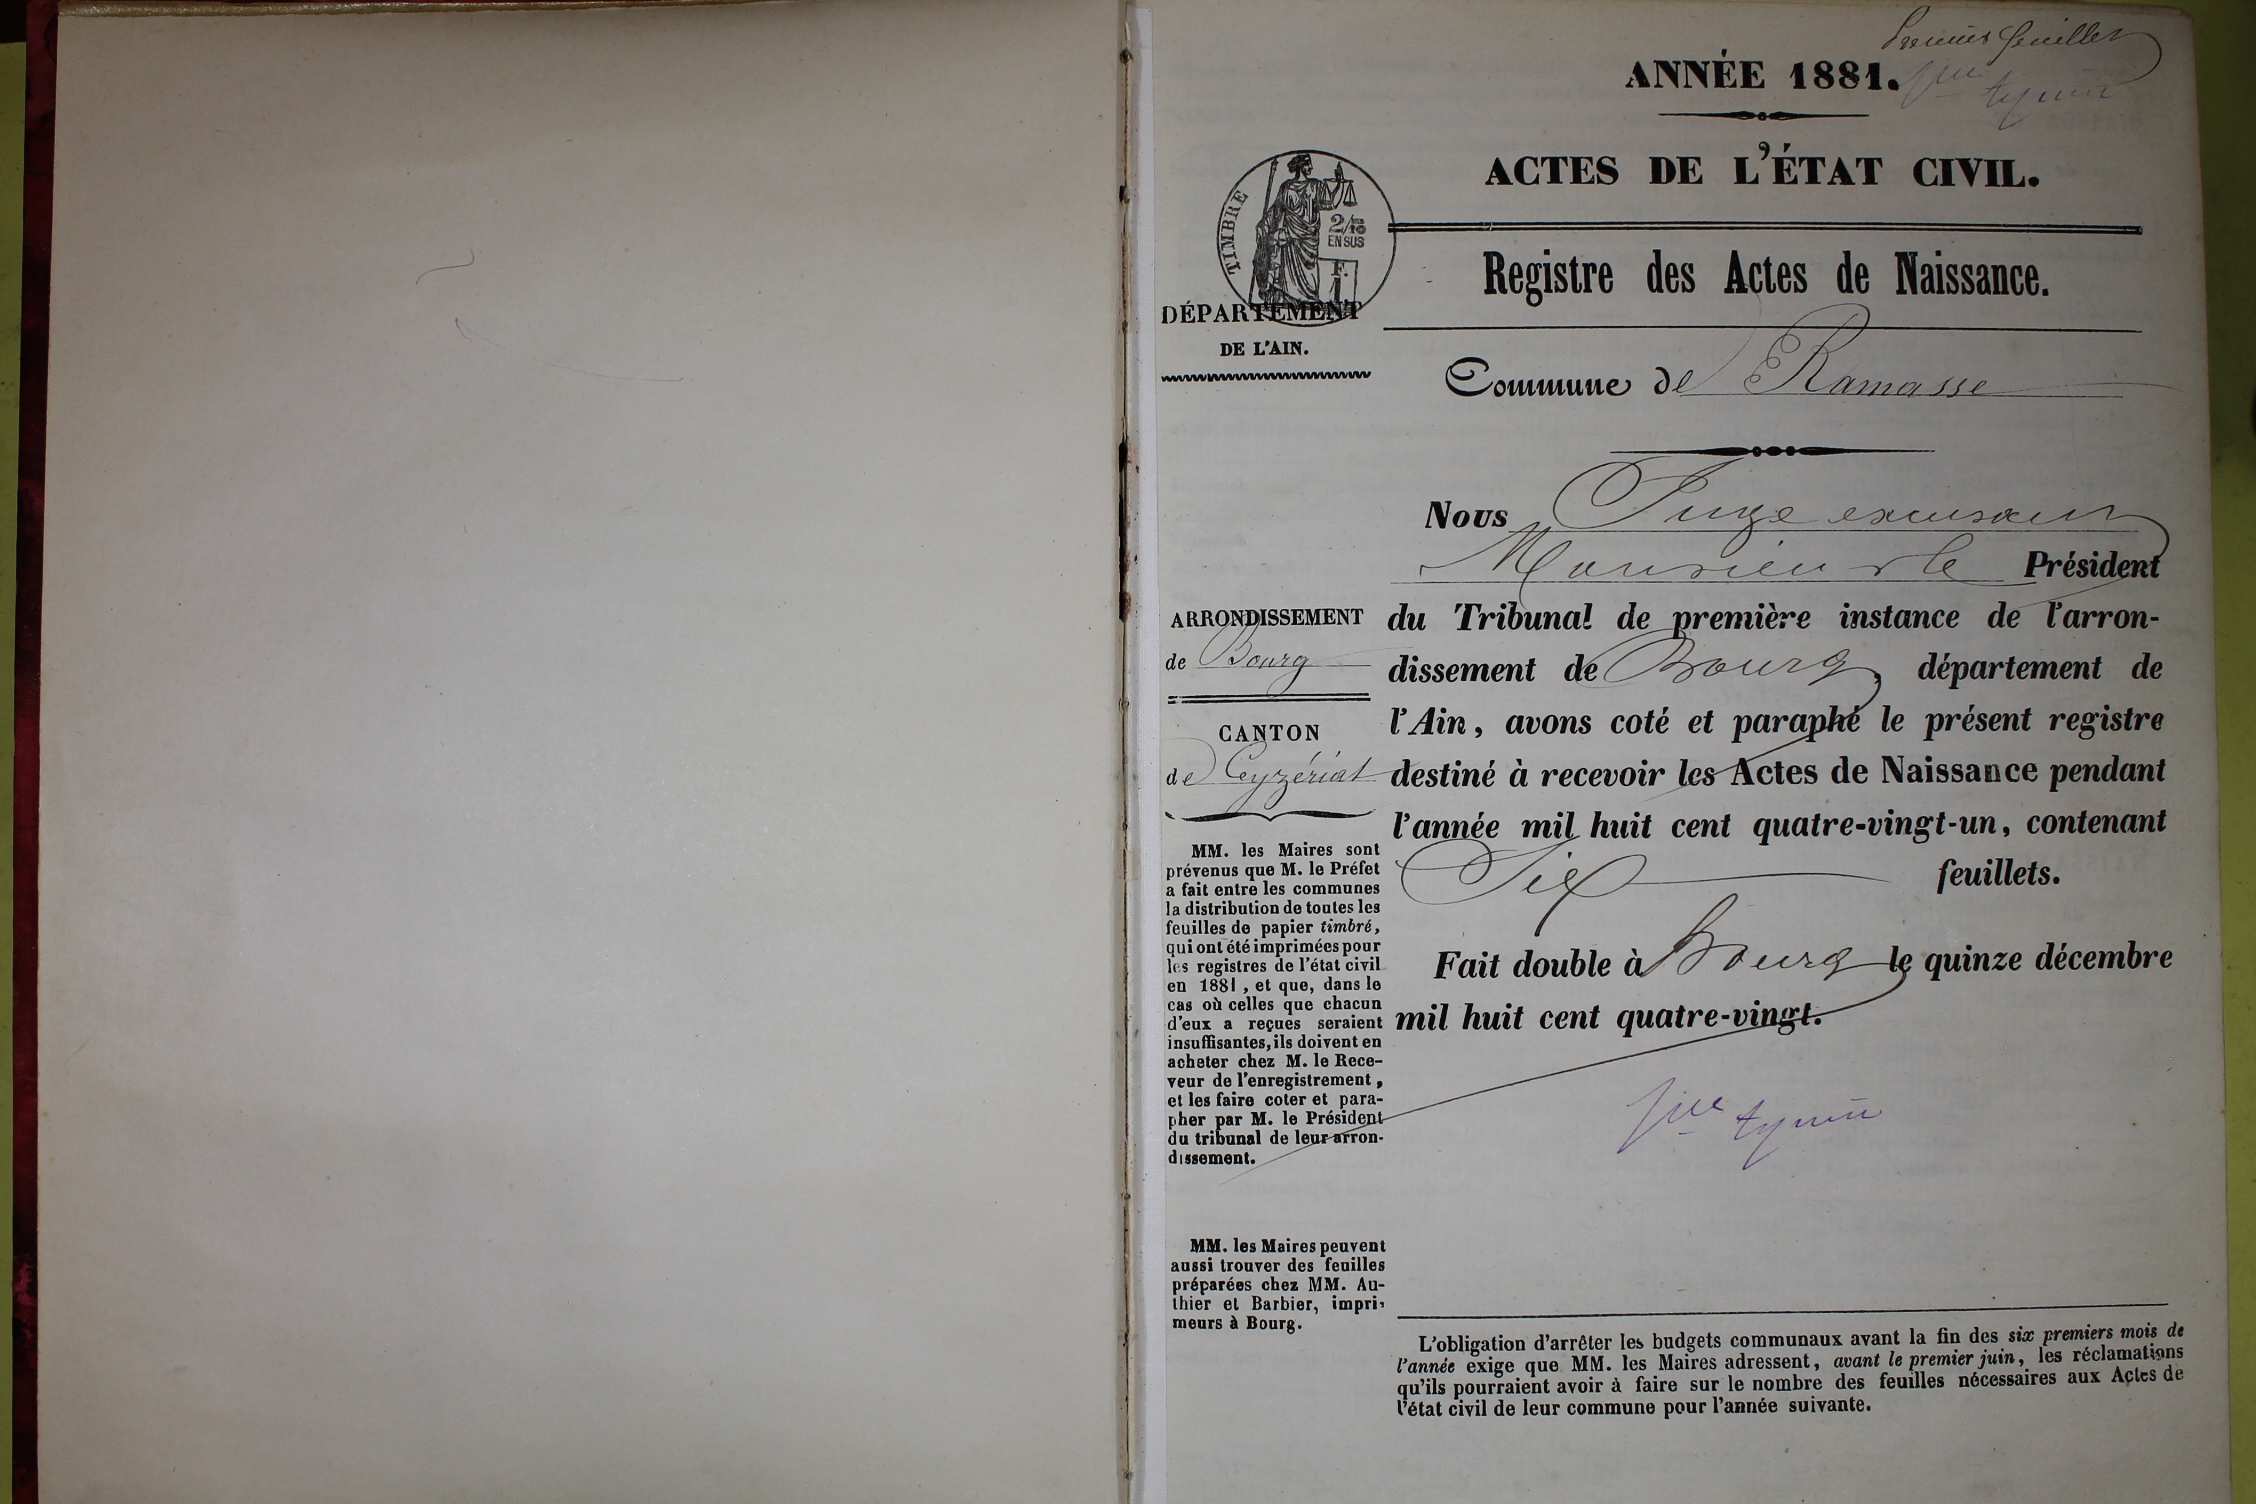 Premier feuillet
ANNÉE 1881.
ACTES DE L'ÉTAT CIVIL.
TIMBRE
2/10
EN SUS
F.
1
Registre des Actes de Naissance.
DÉPARTEMENT
DE L'AIN.
Commune de Ramasse
Nous Juge excusant
Monsieur le Président
du Tribunal de première instance de l'arron-
dissement de Bourg, département de
l'Ain, avons coté et paraphé le présent registre
destiné à recevoir les Actes de Naissance pendant
l'année mil huit cent quatre-vingt-un, contenant
Six feuillets.
Fait double à Bourg le quinze décembre
mil huit cent quatre-vingt.
ARRONDISSEMENT
de Bourg
CANTON
de Ceyzériat
MM. les Maires sont
prévenus que M. le Préfet
a fait entre les communes
la distribution de toutes les
feuilles de papier timbré,
qui ont été imprimées pour
les registres de l'état civil
en 1881, et que, dans le
cas où celles que chacun
d'eux a reçues seraient
insuffisantes, ils doivent en
acheter chez M. le Rece-
veur de l'enregistrement,
et les faire coter et para-
pher par M. le Président
du tribunal de leur arron-
dissement.
MM. les Maires peuvent
aussi trouver des feuilles
préparées chez MM. Au-
thier et Barbier, impri-
meurs à Bourg.
L'obligation d'arrêter les budgets communaux avant la fin des six premiers mois de
l'année exige que MM. les Maires adressent, avant le premier juin, les réclamations
qu'ils pourraient avoir à faire sur le nombre des feuilles nécessaires aux Actes de
l'état civil de leur commune pour l'année suivante.